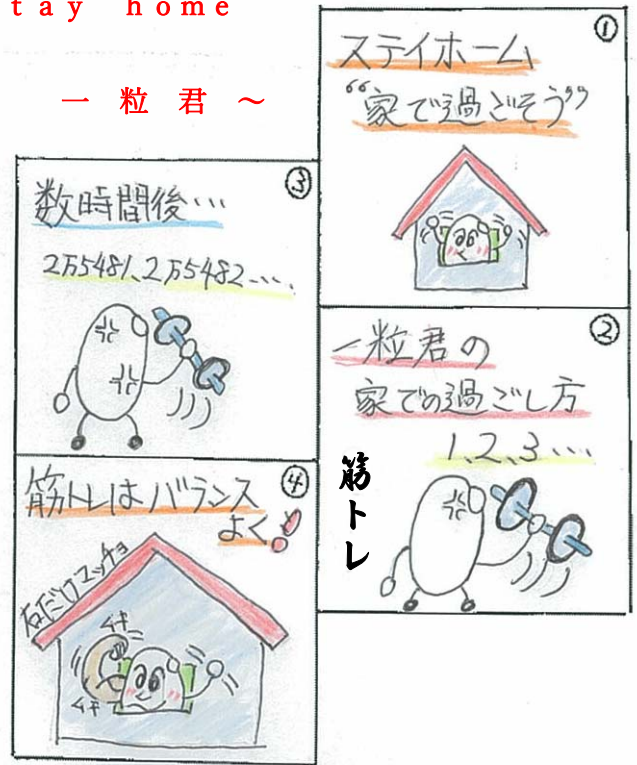 tay home
一粒君～
①
ステイホーム
“家で過ごそう”
②
一粒君の
家での過ごし方
1、2、3…
筋トレ
③
数時間後…
2万5481、2万5482….
④
筋トレはバランス
よく！
右だけマッチョ
ムキ
ムキ